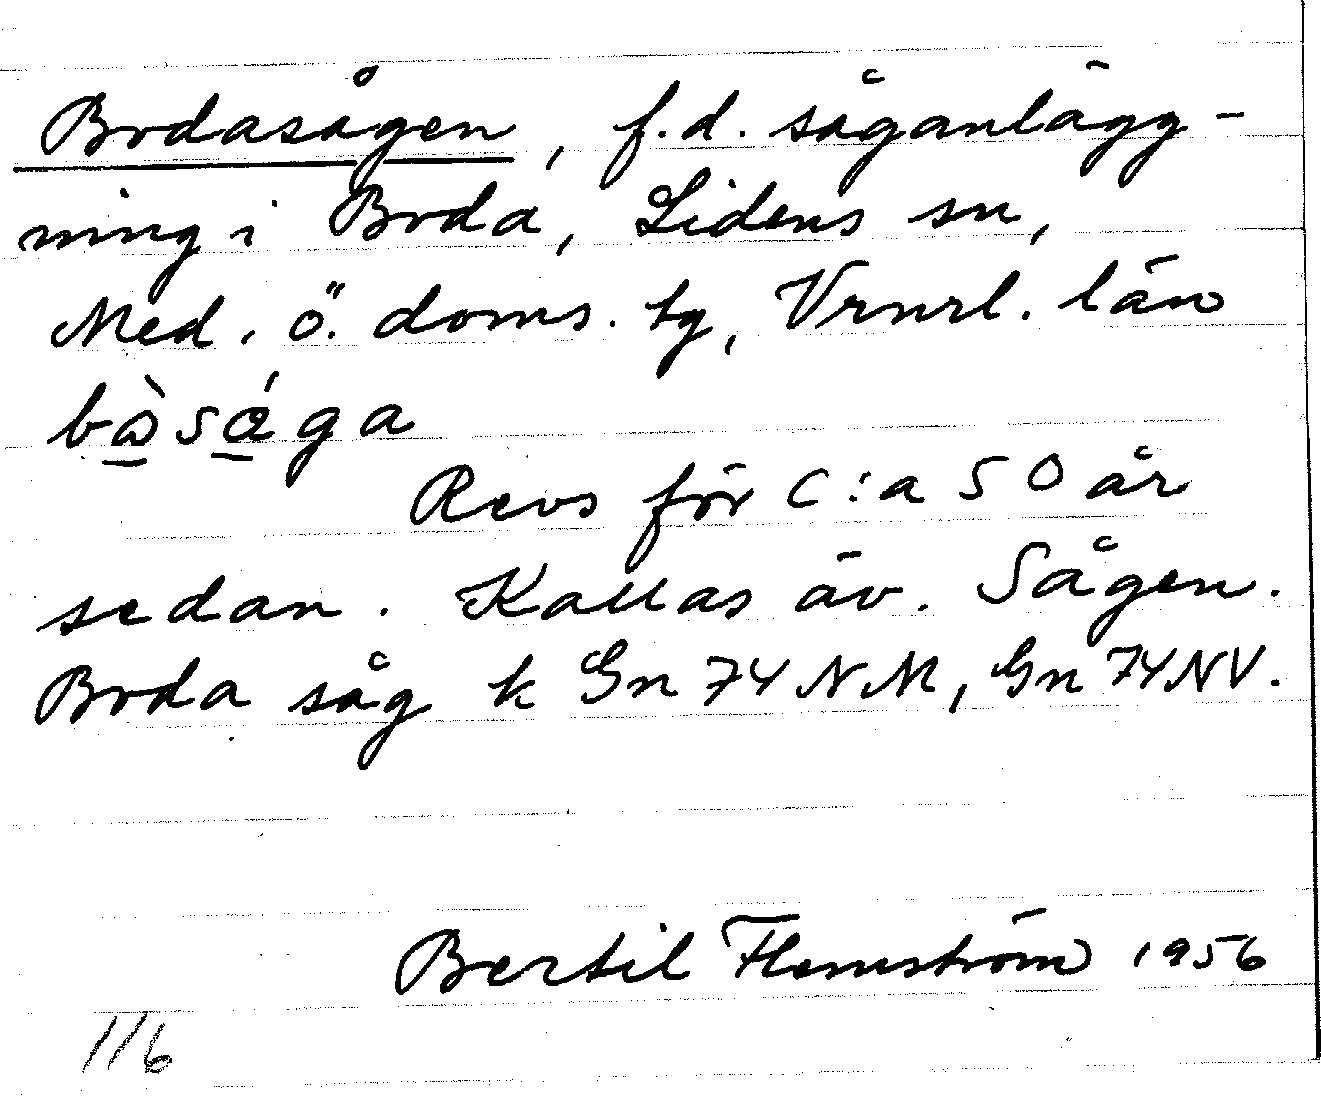 Bodasågen, f.d. såganlägg-
ning i Boda, Lidens sn,
Med. ö. doms. tg, Vrnrl. län
Revs för c:a 50 år
sedan. Kallas äv. Sågen.
Boda såg k Gn 74 NM, Gn 74 NV.
Bertil Flemström 1956
116